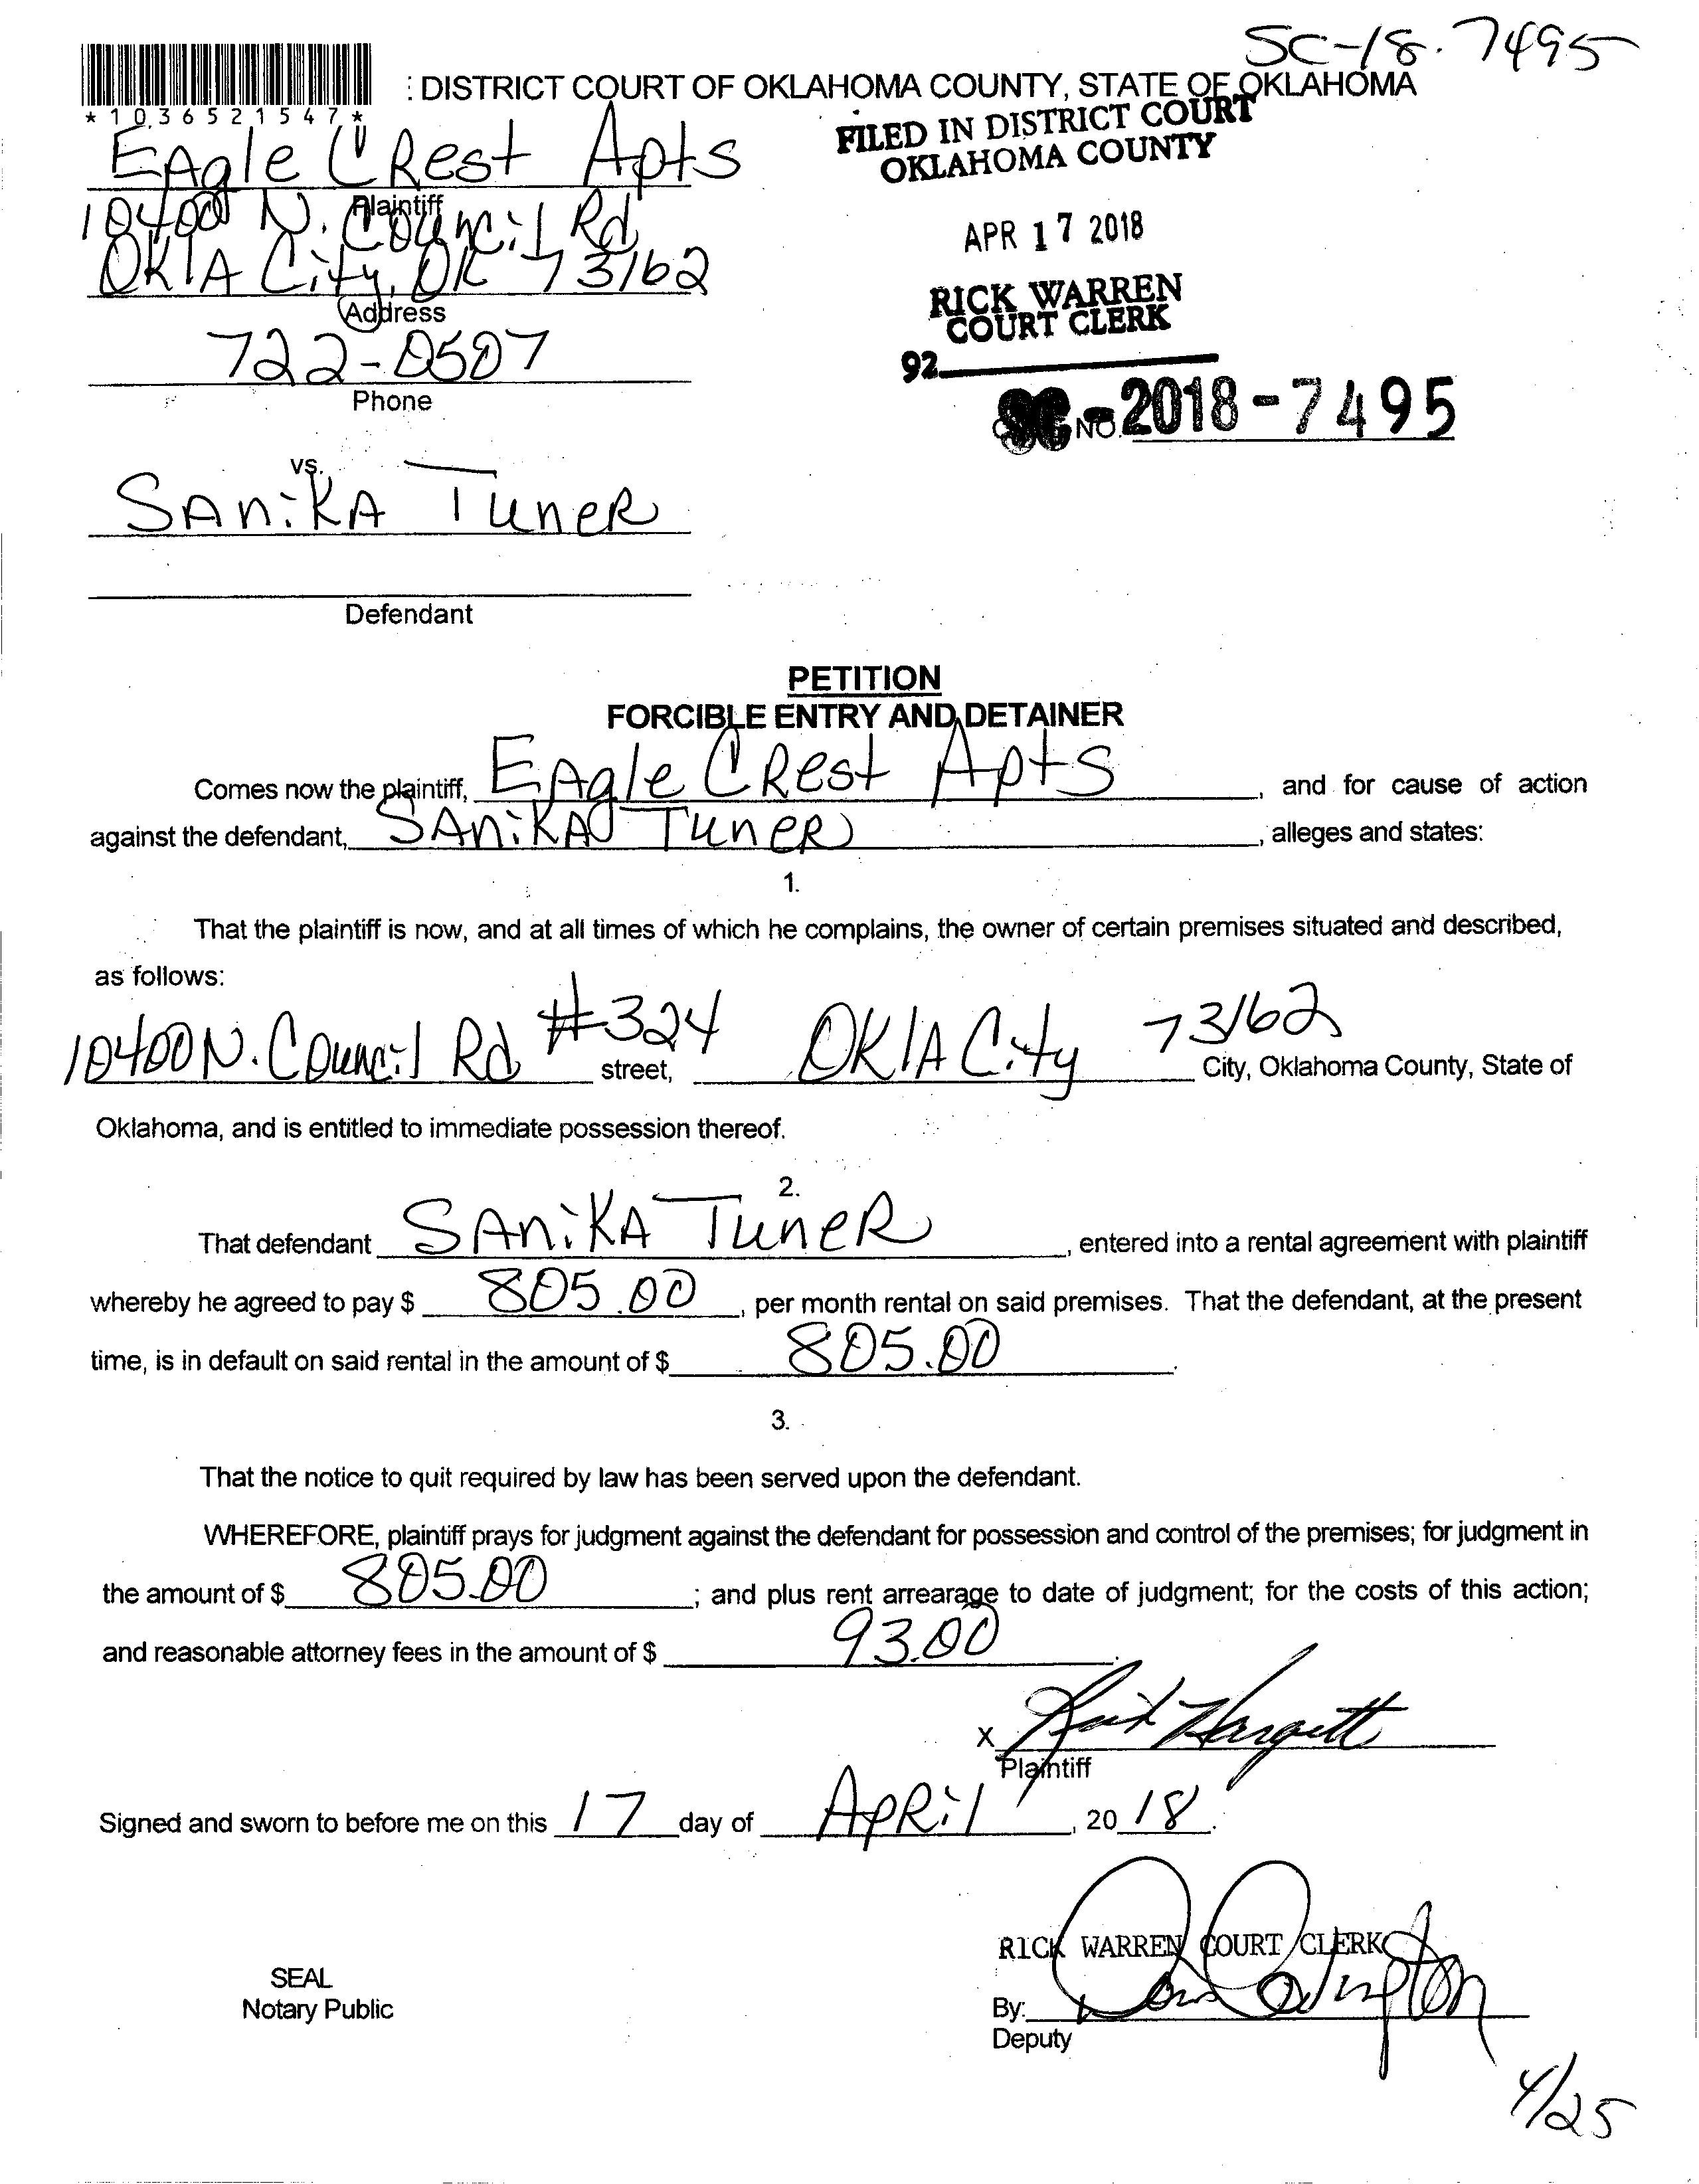 SC-18-7495
: DISTRICT COURT OF OKLAHOMA COUNTY, STATE OF OKLAHOMA
*1036521547*
FILED IN DISTRICT COURT
OKLAHOMA COUNTY
EAgle CRest Apts
Plaintiff
10400 N. Council Rd
OKlA City, OK 73162
Address
APR 17 2018
RICK WARREN
COURT CLERK
92
722-0507
Phone
SC NO. -2018-7495
vs.
SANiKA TuneR
Defendant
PETITION
FORCIBLE ENTRY AND DETAINER
Comes now the plaintiff, EAgle CRest Apts, and for cause of action
against the defendant, SANiKA TuneR, alleges and states:
1.
That the plaintiff is now, and at all times of which he complains, the owner of certain premises situated and described,
as follows:
10400 N. Council Rd #324 street, OKlA City 73162 City, Oklahoma County, State of
Oklahoma, and is entitled to immediate possession thereof.
2.
That defendant SANiKA TuneR, entered into a rental agreement with plaintiff
whereby he agreed to pay $ 805.00, per month rental on said premises. That the defendant, at the present
time, is in default on said rental in the amount of $ 805.00.
3.
That the notice to quit required by law has been served upon the defendant.
WHEREFORE, plaintiff prays for judgment against the defendant for possession and control of the premises; for judgment in
the amount of $ 805.00; and plus rent arrearage to date of judgment; for the costs of this action;
and reasonable attorney fees in the amount of $ 93.00.
X
Plaintiff
Signed and sworn to before me on this 17 day of ApRil, 2018.
RICK WARREN COURT CLERK
SEAL
Notary Public
By:
Deputy
4/25